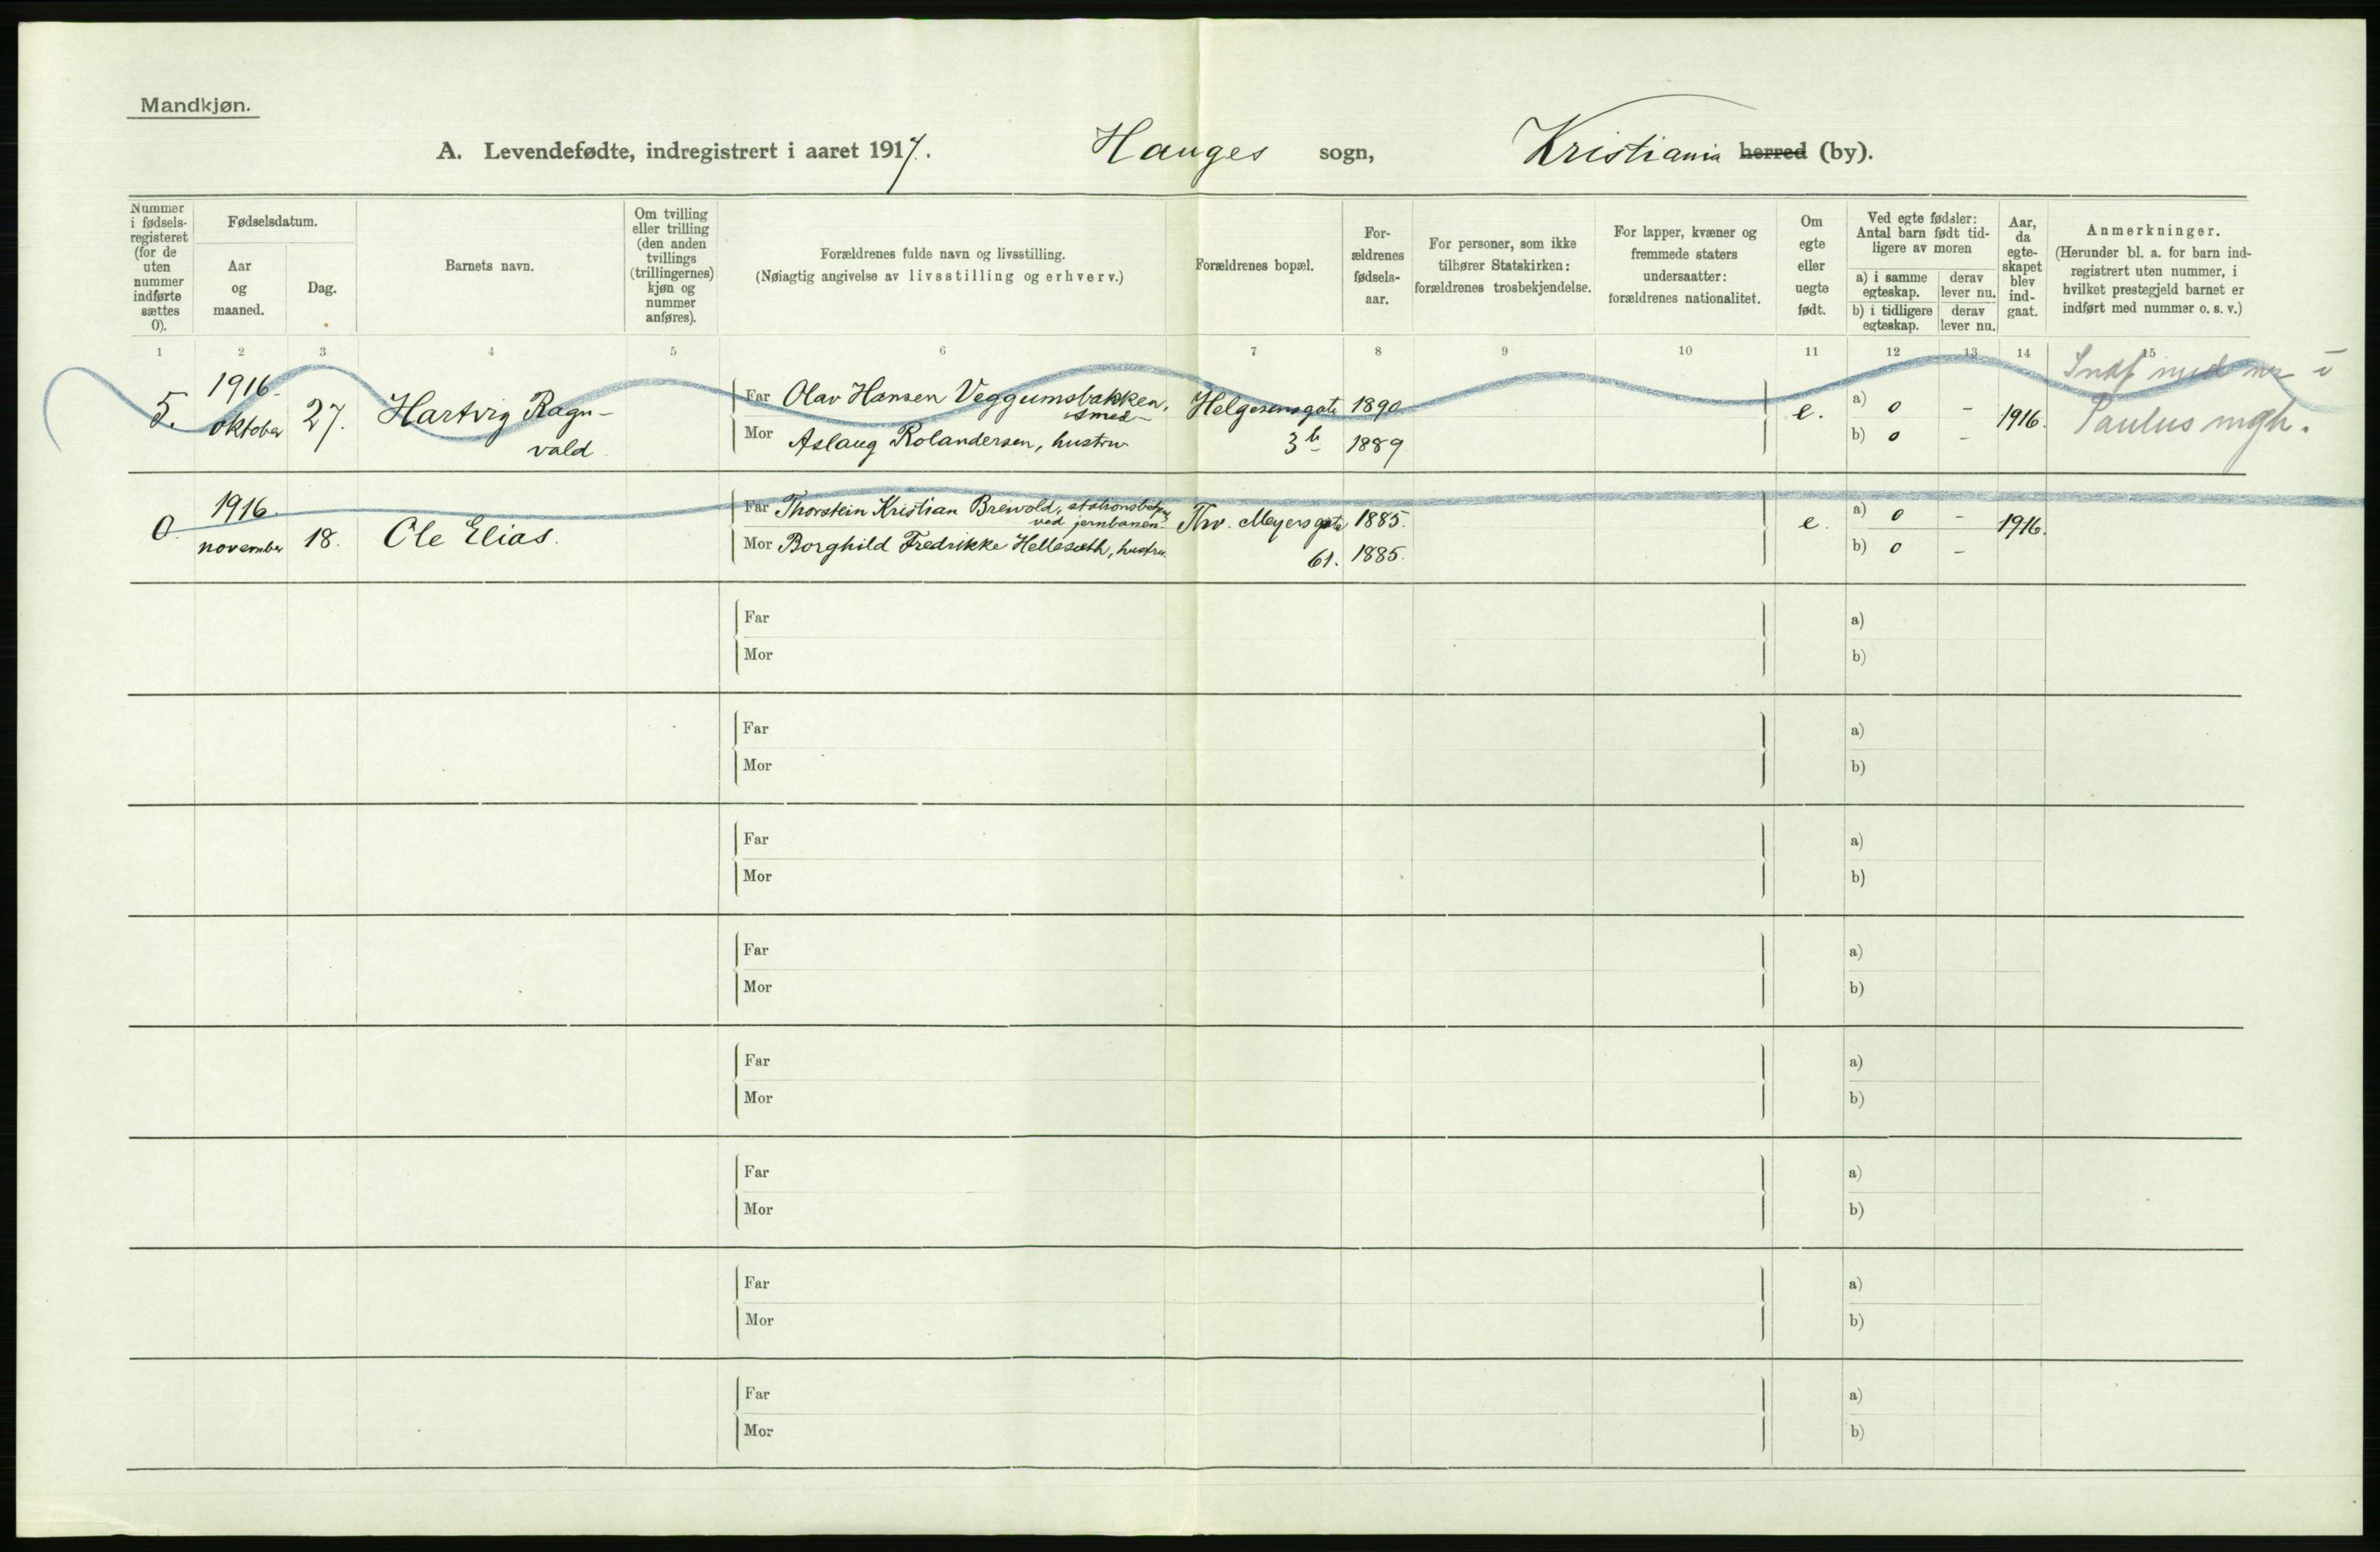 Mandkjøn.
A. Levendefødte, indregistrert i aaret 1917. Hauges sogn, Kristiania herred (by).
Nummer i fødsels-registeret (for de uten nummer indførte sættes 0).
Fødselsdatum.
Aar og maaned.
Dag.
Barnets navn.
Om tvilling eller trilling (den anden tvillings (trillingernes) kjøn og nummer anføres).
Forældrenes fulde navn og livsstilling.
(Nøiagtig angivelse av livsstilling og erhverv.)
Forældrenes bopæl.
For-ældrenes fødsels-aar.
For personer, som ikke tilhører Statskirken: forældrenes trosbekjendelse.
For lapper, kvæner og fremmede staters undersaatter: forældrenes nationalitet.
Om egte eller uegte født.
Ved egte fødsler: Antal barn født tid-ligere av moren
a) i samme egteskap. derav lever nu.
b) i tidligere egteskap. derav lever nu.
Aar, da egte-skapet blev ind-gaat.
Anmerkninger.
(Herunder bl. a. for barn ind-registrert uten nummer, i hvilket prestegjeld barnet er indført med nummer o. s. v.)
1 2 3 4 5 6 7 8 9 10 11 12 13 14 15
5. 1916. oktober 27. Hartvig Ragn-
vald
Far Olav Hansen Veggumsbakken, smed
Mor Aslaug Rolandersen, hustru
Helgesensgate 3 b
1890
1889
e.
a) 0 -
b) 0 -
1916.
Indf med nr i
Paulus mgh.
0. 1916. november 18. Ole Elias.
Far Thorstein Kristian Breivold, ved jernbanen.
Mor Borghild Fredrikke Hellesæth, hustru
Thv. Meyers gate 61.
1885.
1885.
e.
a) 0 -
b) 0 -
1916.
Far a)
Mor b)
Far a)
Mor b)
Far a)
Mor b)
Far a)
Mor b)
Far a)
Mor b)
Far a)
Mor b)
Far a)
Mor b)
Far a)
Mor b)